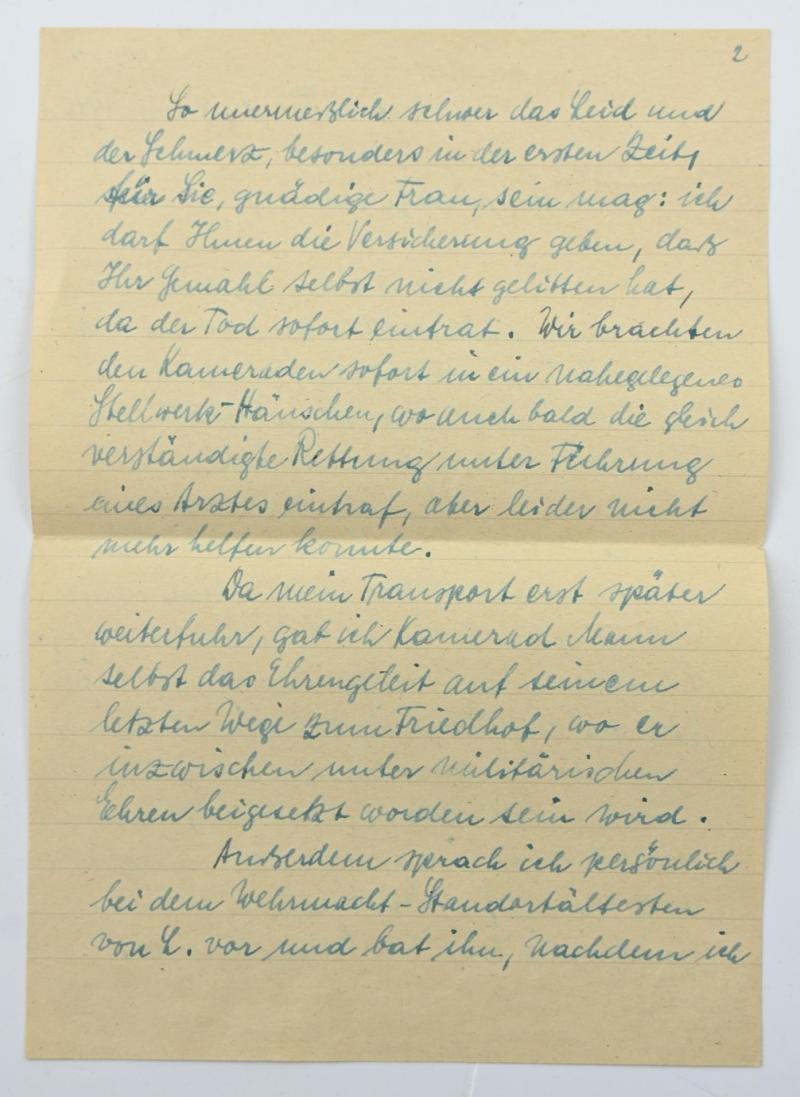 2
So unermeßlich schwer das Leid und
der Schmerz, besonders in der ersten Zeit,
für Sie, gnädige Frau, sein mag: ich
darf Ihnen die Versicherung geben, daß
Ihr Gemahl selbst nicht gelitten hat,
da der Tod sofort eintrat. Wir brachten
den Kameraden sofort in ein nahegelegenes
Stellwerk-Häuschen, wo auch bald die gleich
verständigte Rettung unter Führung
eines Arztes eintraf, aber leider nicht
mehr helfen konnte.
Da mein Transport erst später
weiterfuhr, gab ich Kamerad Mann
selbst das Ehrengeleit auf seinem
letzten Wege zum Friedhof, wo er
inzwischen unter militärischen
Ehren beigesetzt worden sein wird.
Außerdem sprach ich persönlich
bei dem Wehrmacht-Standortältesten
von L. vor und bat ihn, nachdem ich